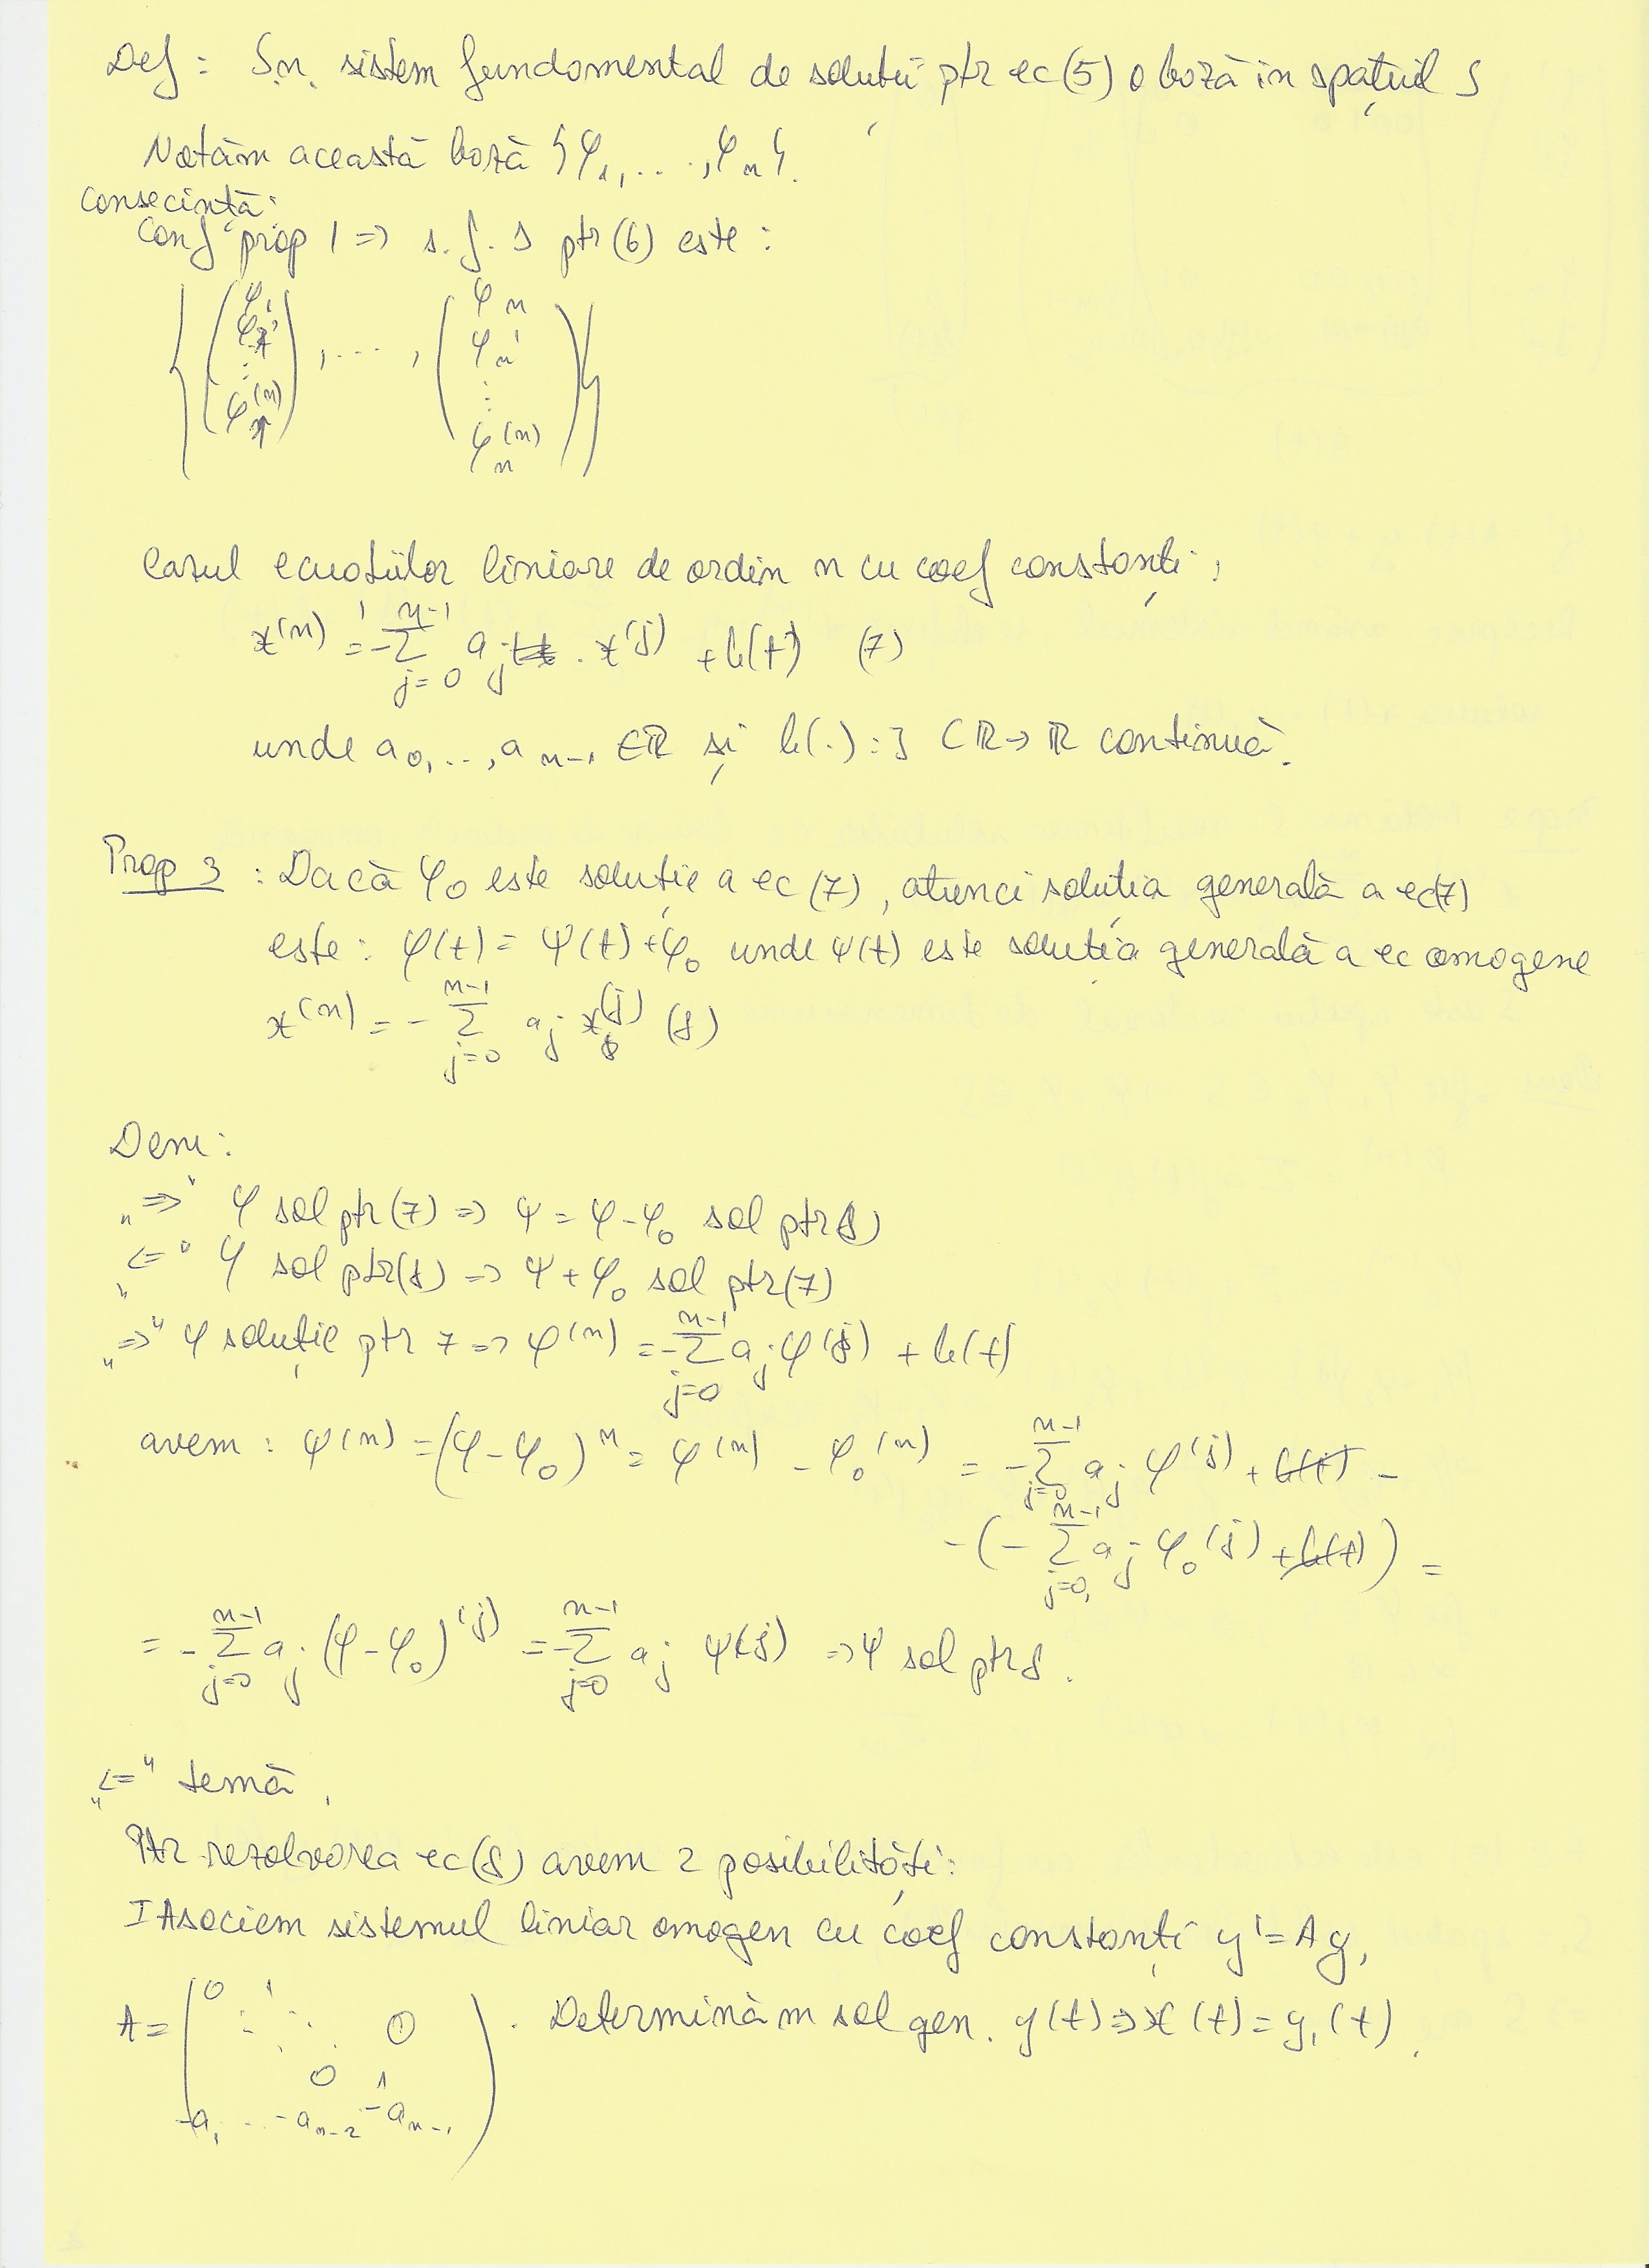 Def : S.n. sistem fundamental de soluții ptr ec (5) o bază in spațiul S
Notăm această bază {φ₁, ..., φₙ}.
Consecință:
Conf prop 1 => s.f.s ptr (6) este :
{ (φ₁ φ₁' ⋮ φ₁⁽ⁿ⁾), ...., (φₙ φₙ' ⋮ φₙ⁽ⁿ⁾) }
Cazul ecuațiilor liniare de ordin n cu coef constanți :
x⁽ⁿ⁾ = -∑_{j=0}^{n-1} a_j · x⁽ʲ⁾ + b(t) (7)
unde a₀, ..., aₙ₋₁ ∈ ℝ și b(.) : J ⊂ ℝ → ℝ continuă.
Prop 3 : Dacă φ₀ este soluție a ec (7), atunci soluția generală a ec(7)
este : φ(t) = ψ(t) + φ₀ unde ψ(t) este soluția generală a ec omogene
x⁽ⁿ⁾ = - ∑_{j=0}^{n-1} a_j x⁽ʲ⁾ (8)
Dem :
„=>" φ sol ptr (7) => ψ = φ - φ₀ sol ptr 8)
„<=" ψ sol ptr (8) => ψ + φ₀ sol ptr (7)
„=>" φ soluție ptr 7 => φ⁽ⁿ⁾ = -∑_{j=0}^{n-1} a_j φ(j) + b(t)
avem : ψ⁽ⁿ⁾ = (φ - φ₀)ⁿ = φ⁽ⁿ⁾ - φ₀⁽ⁿ⁾ = -∑_{j=0}^{n-1} a_j φ⁽ʲ⁾ + b(t) -
- (- ∑_{j=0}^{n-1} a_j φ₀⁽ʲ⁾ + b(t)) =
= - ∑_{j=0}^{n-1} a_j (φ - φ₀)⁽ʲ⁾ = -∑_{j=0}^{n-1} a_j ψ(j) => ψ sol ptr 8.
„<=" temă.
Ptr rezolvarea ec (8) avem 2 posibilități :
I Asociem sistemul liniar omogen cu coef constanți y' = Ay,
A = (0 1 ⋱ 0 0 1 -a₁ ... -aₙ₋₂ -aₙ₋₁) . Determinăm sol gen. y(t) => x(t) = y₁(t).